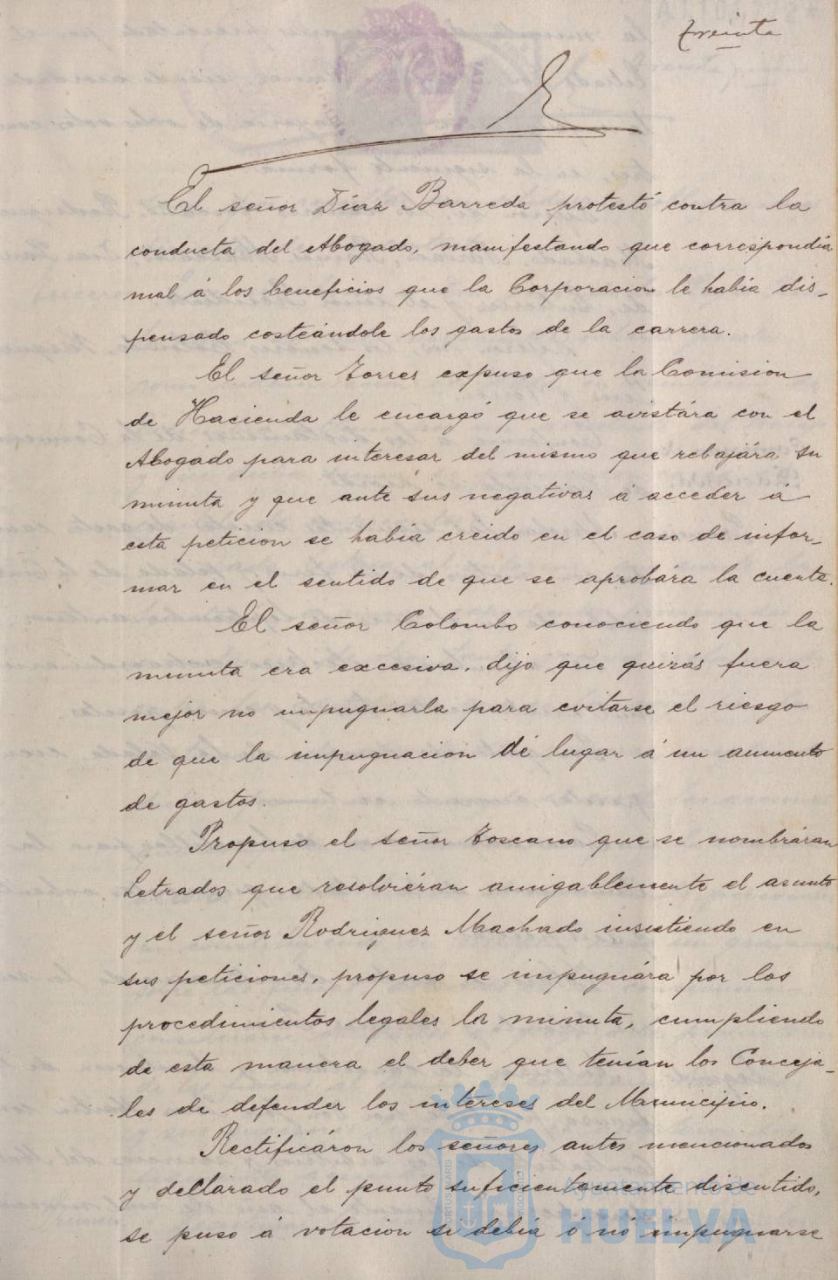 treinta
El señor Díaz Barreda protestó contra la
conducta del Abogado, manifestando que correspondía
mal á los beneficios que la Corporacion le había dis-
pensado costeándole los gastos de la carrera.
El señor Torres expuso que la Comision
de Hacienda le encargó que se avistára con el
Abogado para interesar del mismo que rebajára su
minuta y que ante sus negativas á acceder á
esta peticion se había creido en el caso de infor-
mar en el sentido de que se aprobára la cuenta.
El señor Colombo conociendo que la
minuta era excesiva, dijo que quizás fuera
mejor no impugnarla para evitarse el riesgo
de que la impugnacion dé lugar á un aumento
de gastos.
Propuso el señor Toscano que se nombráran
Letrados que resolviéran amigablemente el asunto
y el señor Rodriguez Machado insistiendo en
sus peticiones, propuso se impugnára por los
procedimientos legales la minuta, cumpliendo
de esta manera el deber que tenían los Conceja-
les de defender los intereses del Municipio.
Rectificáron los señores antes mencionados
y declarado el punto suficientemente discutido,
se puso á votacion si debía ó nó impugnarse
Ayuntamiento de
HUELVA